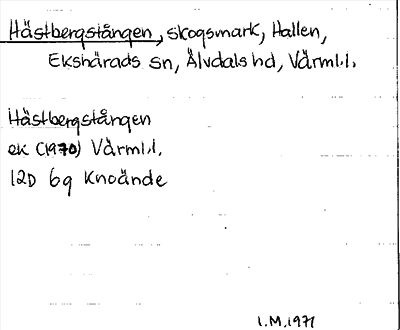 Hästbergstången, skogsmark, Hallen,
Ekshärads sn, Älvdals hd, Värml.l.
Hästbergstången
ek (1970) Värml.l.
12D 6g Knoände
I.M.1971